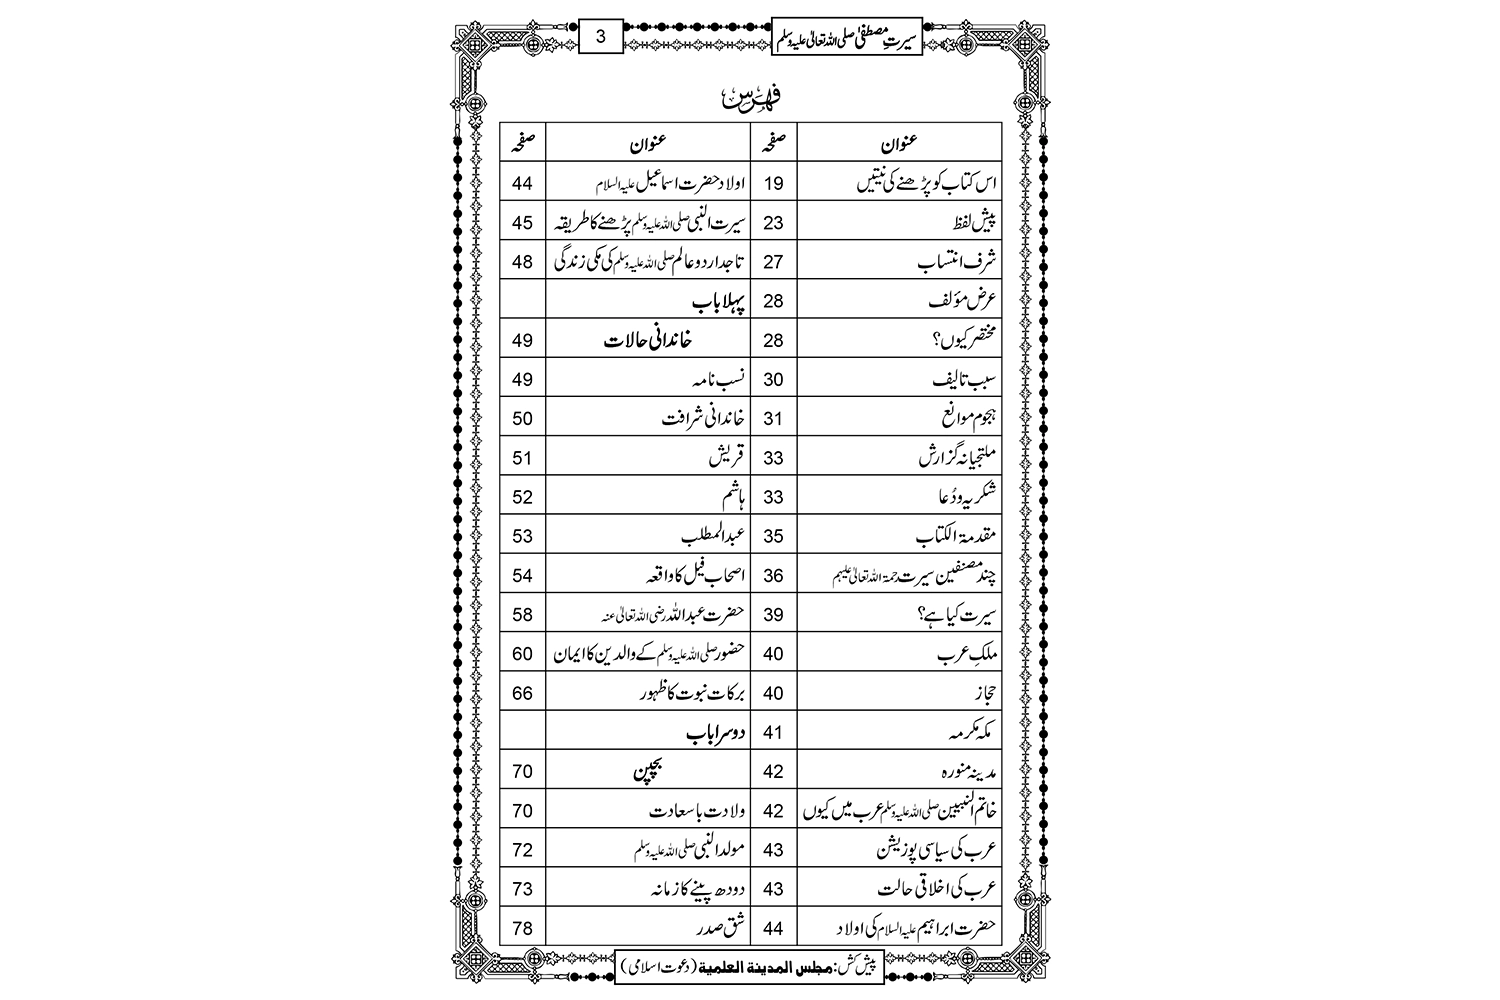 سیرتِ مصطفیٰ صلی اللہ تعالیٰ علیہ وسلم 3
فہرس
عنوان صفحہ عنوان صفحہ
اس کتاب کو پڑھنے کی نیتیں 19 اولاد حضرت اسماعیل علیہ السلام 44
پیش لفظ 23 سیرت النبی صلی اللہ علیہ وسلم پڑھنے کا طریقہ 45
شرف انتساب 27 تاجدار دو عالم صلی اللہ علیہ وسلم کی مکی زندگی 48
عرض مؤلف 28 پہلا باب
مختصر کیوں؟ 28 خاندانی حالات 49
سبب تالیف 30 نسب نامہ 49
ہجوم موانع 31 خاندانی شرافت 50
ملتجیانہ گزارش 33 قریش 51
شکریہ ودُعا 33 ہاشم 52
مقدمۃ الکتاب 35 عبدالمطلب 53
چند مصنفین سیرت رحمۃ اللہ تعالیٰ علیہم 36 اصحاب فیل کا واقعہ 54
سیرت کیا ہے؟ 39 حضرت عبداللہ رضی اللہ تعالیٰ عنہ 58
ملکِ عرب 40 حضور صلی اللہ علیہ وسلم کے والدین کا ایمان 60
حجاز 40 برکات نبوت کا ظہور 66
مکہ مکرمہ 41 دوسرا باب
مدینہ منورہ 42 بچپن 70
خاتم النبیین صلی اللہ علیہ وسلم عرب میں کیوں 42 ولادت باسعادت 70
عرب کی سیاسی پوزیشن 43 مولد النبی صلی اللہ علیہ وسلم 72
عرب کی اخلاقی حالت 43 دودھ پینے کا زمانہ 73
حضرت ابراہیم علیہ السلام کی اولاد 44 شق صدر 78
پیش کش: مجلس المدینة العلمیة (دعوت اسلامی)